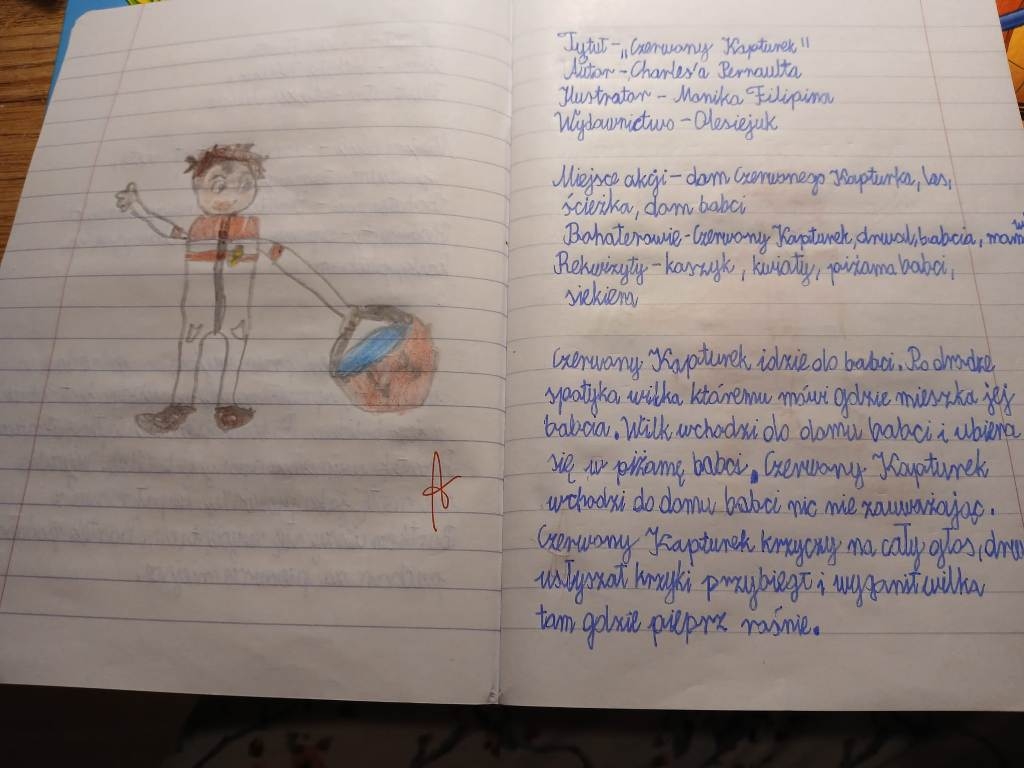 Tytuł - „Czerwony Kapturek"
Autor - Charles'a Perraulta
Ilustrator - Monika Filipina
Wydawnictwo - Olesiejuk
Miejsce akcji - dom Czerwonego Kapturka, las,
ścieżka, dom babci
Bohaterowie - Czerwony Kapturek, drwal, babcia, mam
Rekwizyty - koszyk, kwiaty, piżama babci,
siekiera
Czerwony Kapturek idzie do babci. Po drodze
spotyka wilka któremu mówi gdzie mieszka jej
babcia. Wilk wchodzi do domu babci i ubiera
się w piżamę babci. Czerwony Kapturek
wchodzi do domu babci nic nie zauważając.
Czerwony Kapturek krzyczy na cały głos, drw
usłyszał krzyki przybiegł i wygonił wilka
tam gdzie pieprz rośnie.